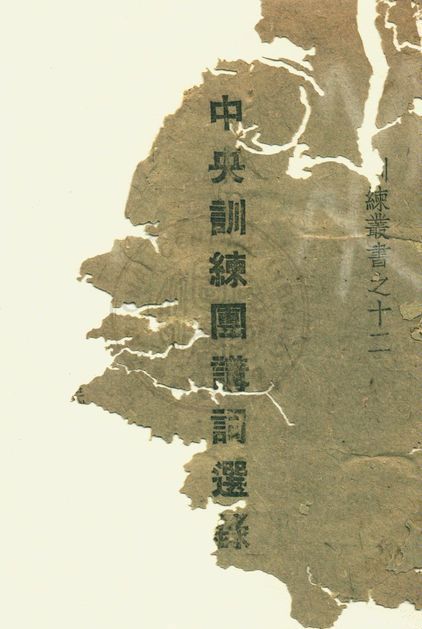 訓練叢書之十二
中央訓練團講詞選錄